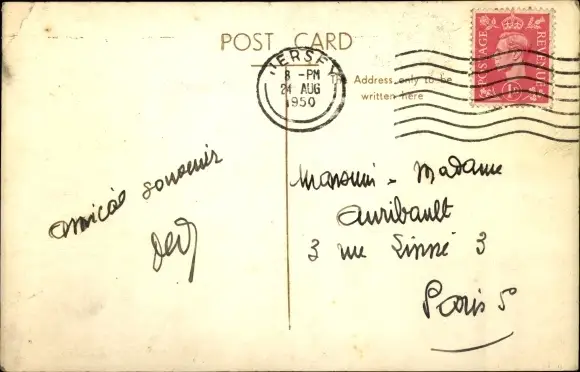 POST CARD
JERSEY
8 - PM
24 AUG
1950
POSTAGE REVENUE
1D
Address only to be
written here
amical souvenir
Madame
Auribault
3 rue Linné 3
Paris 5e